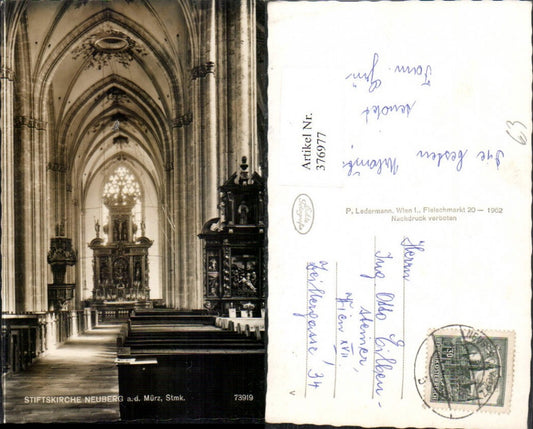 STIFTSKIRCHE NEUBERG a. d. Mürz, Stmk.
73919
Artikel Nr.
376977
Die besten
sendet
Fam.
63
P. Ledermann, Wien I., Fleischmarkt 20 — 1962
Nachdruck verboten
Herrn
Ing. Otto Eilben-
steiner,
Wien XVII
Zeillergasse 34
V